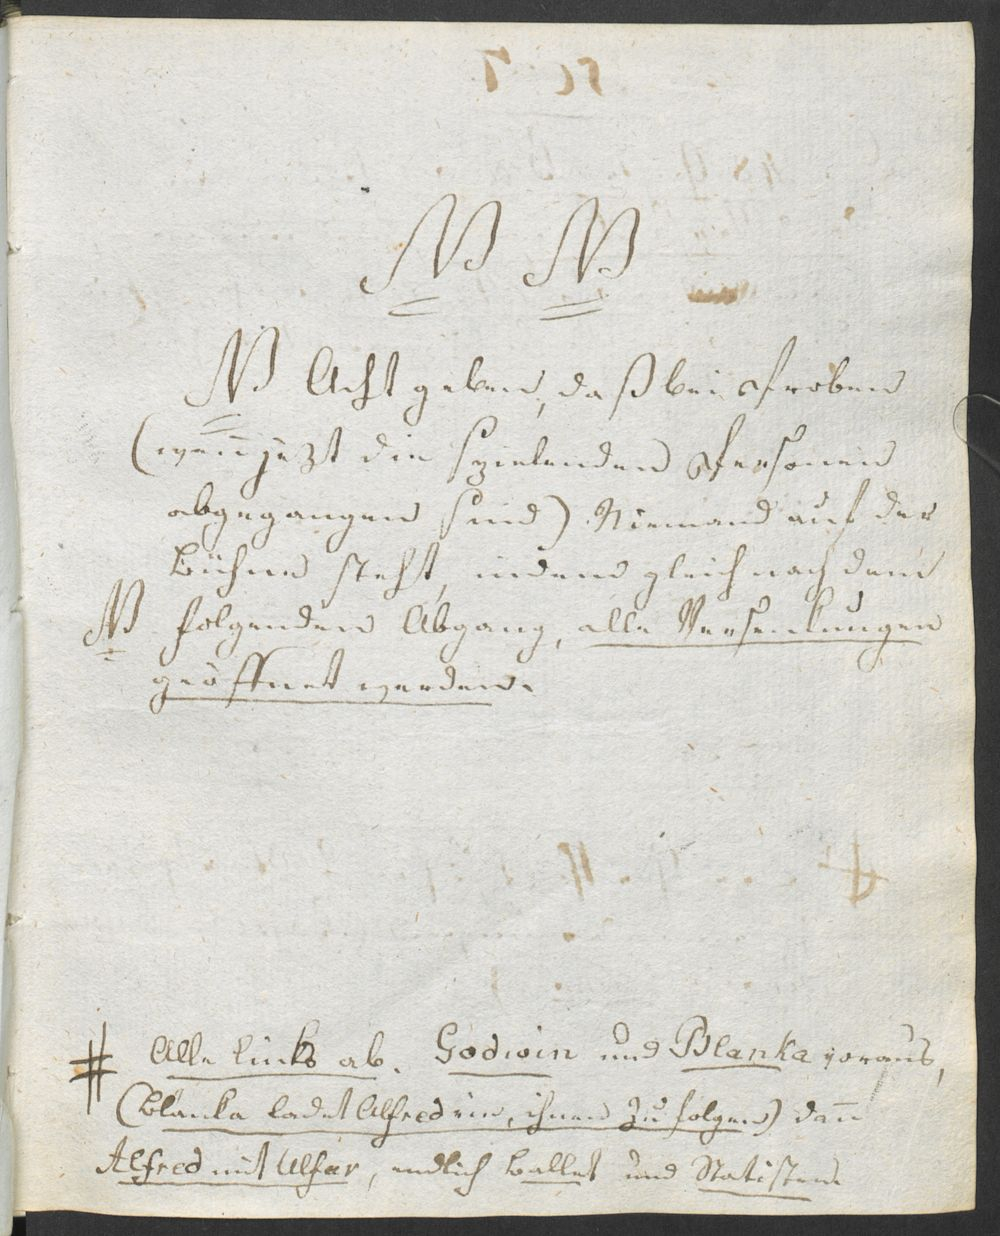 NB NB
NB Acht geben, daß bei Proben
(wenn jezt die spielenden Personen
abgegangen sind) Niemand auf der
Bühne steht, indem gleich nach dem
NB folgenden Abgang, alle Versenkungen
geöffnet werden.
# Alle links ab. Godwin und Blanka voraus,
(Blanka ladet Alfred ein, ihnen zu folgen) dann
Alfred mit Ulfar, endlich Ballet und Statisten.